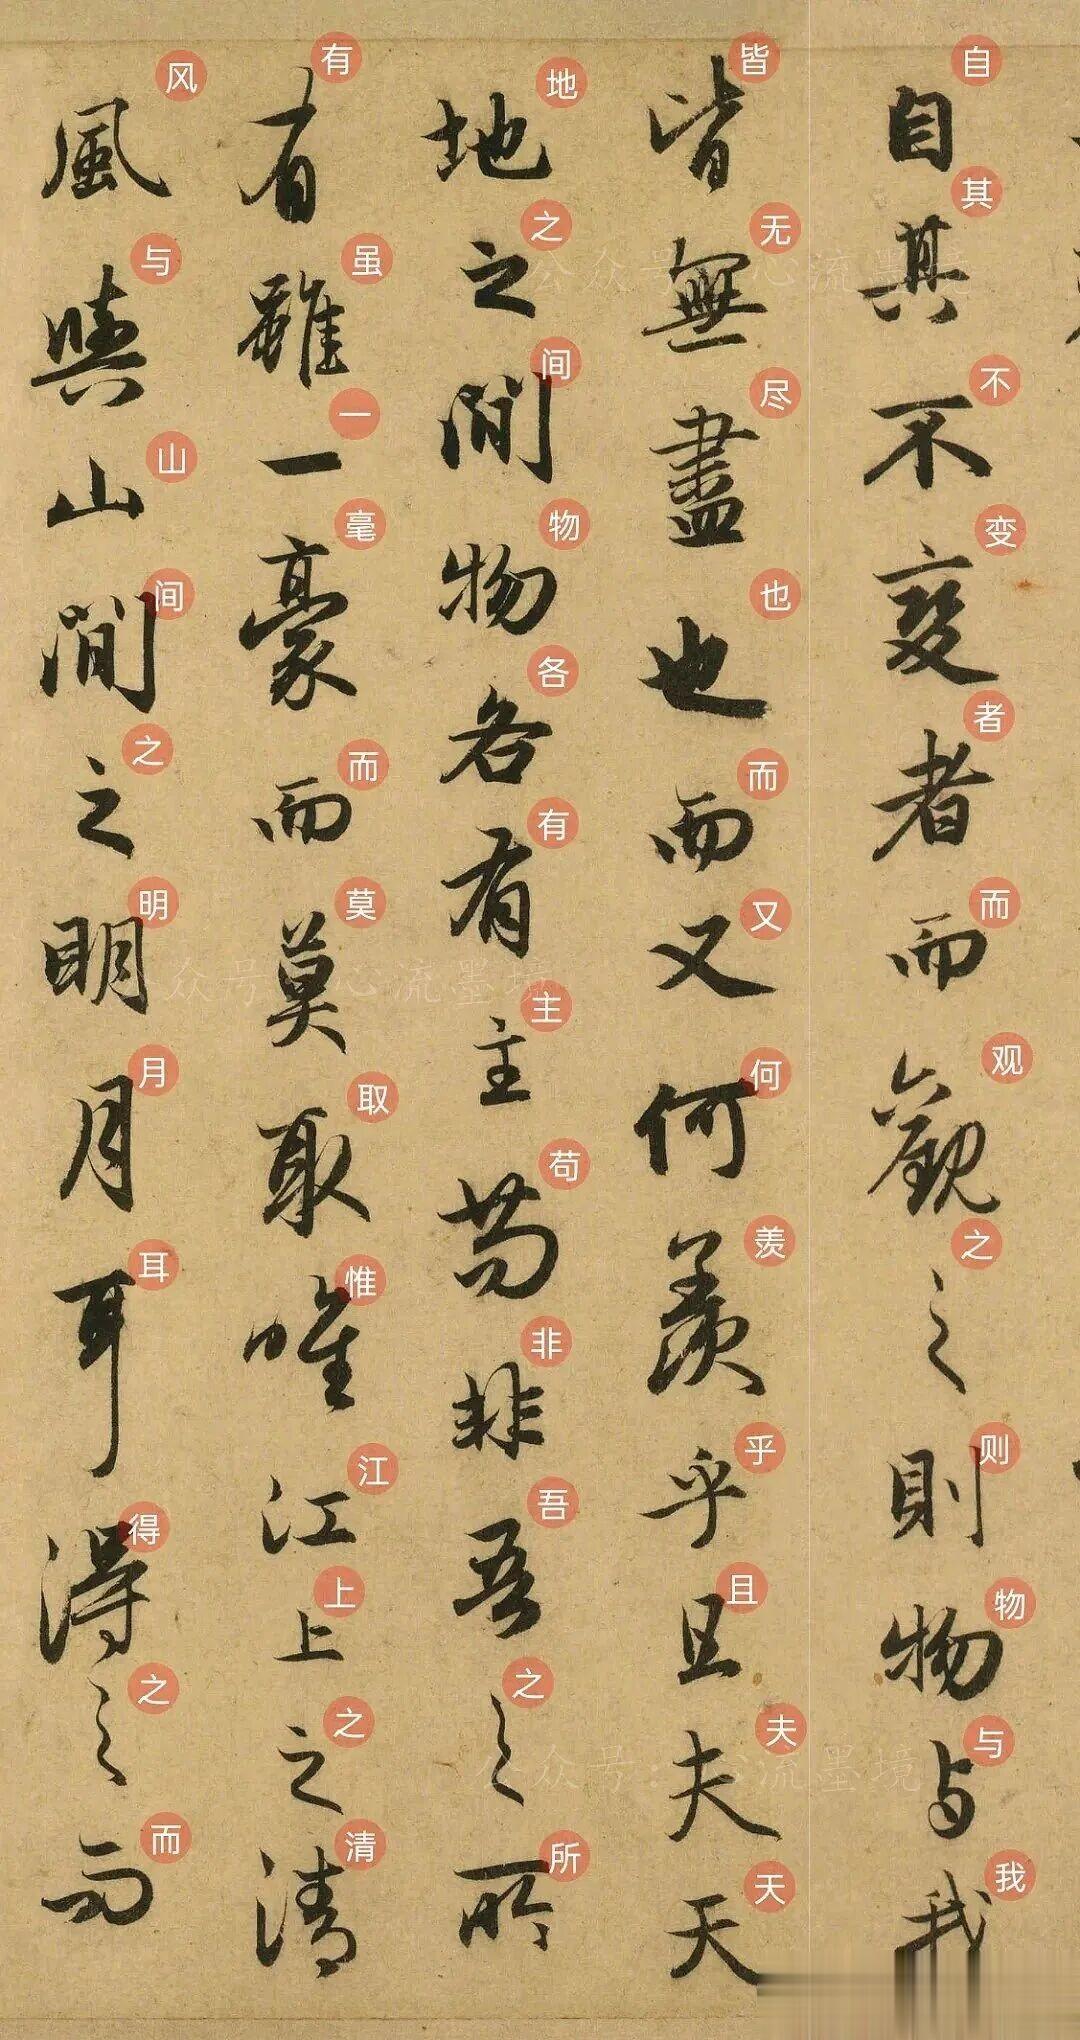 自其不變者而觀之則物与我
自其不变者而观之则物与我
皆無盡也而又何羨乎且夫天
皆无尽也而又何羡乎且夫天
地之間物各有主苟非吾之所
地之间物各有主苟非吾之所
有雖一豪而莫取惟江上之清
有虽一毫而莫取惟江上之清
風與山間之明月耳得之而
风与山间之明月耳得之而
公众号:心流墨境